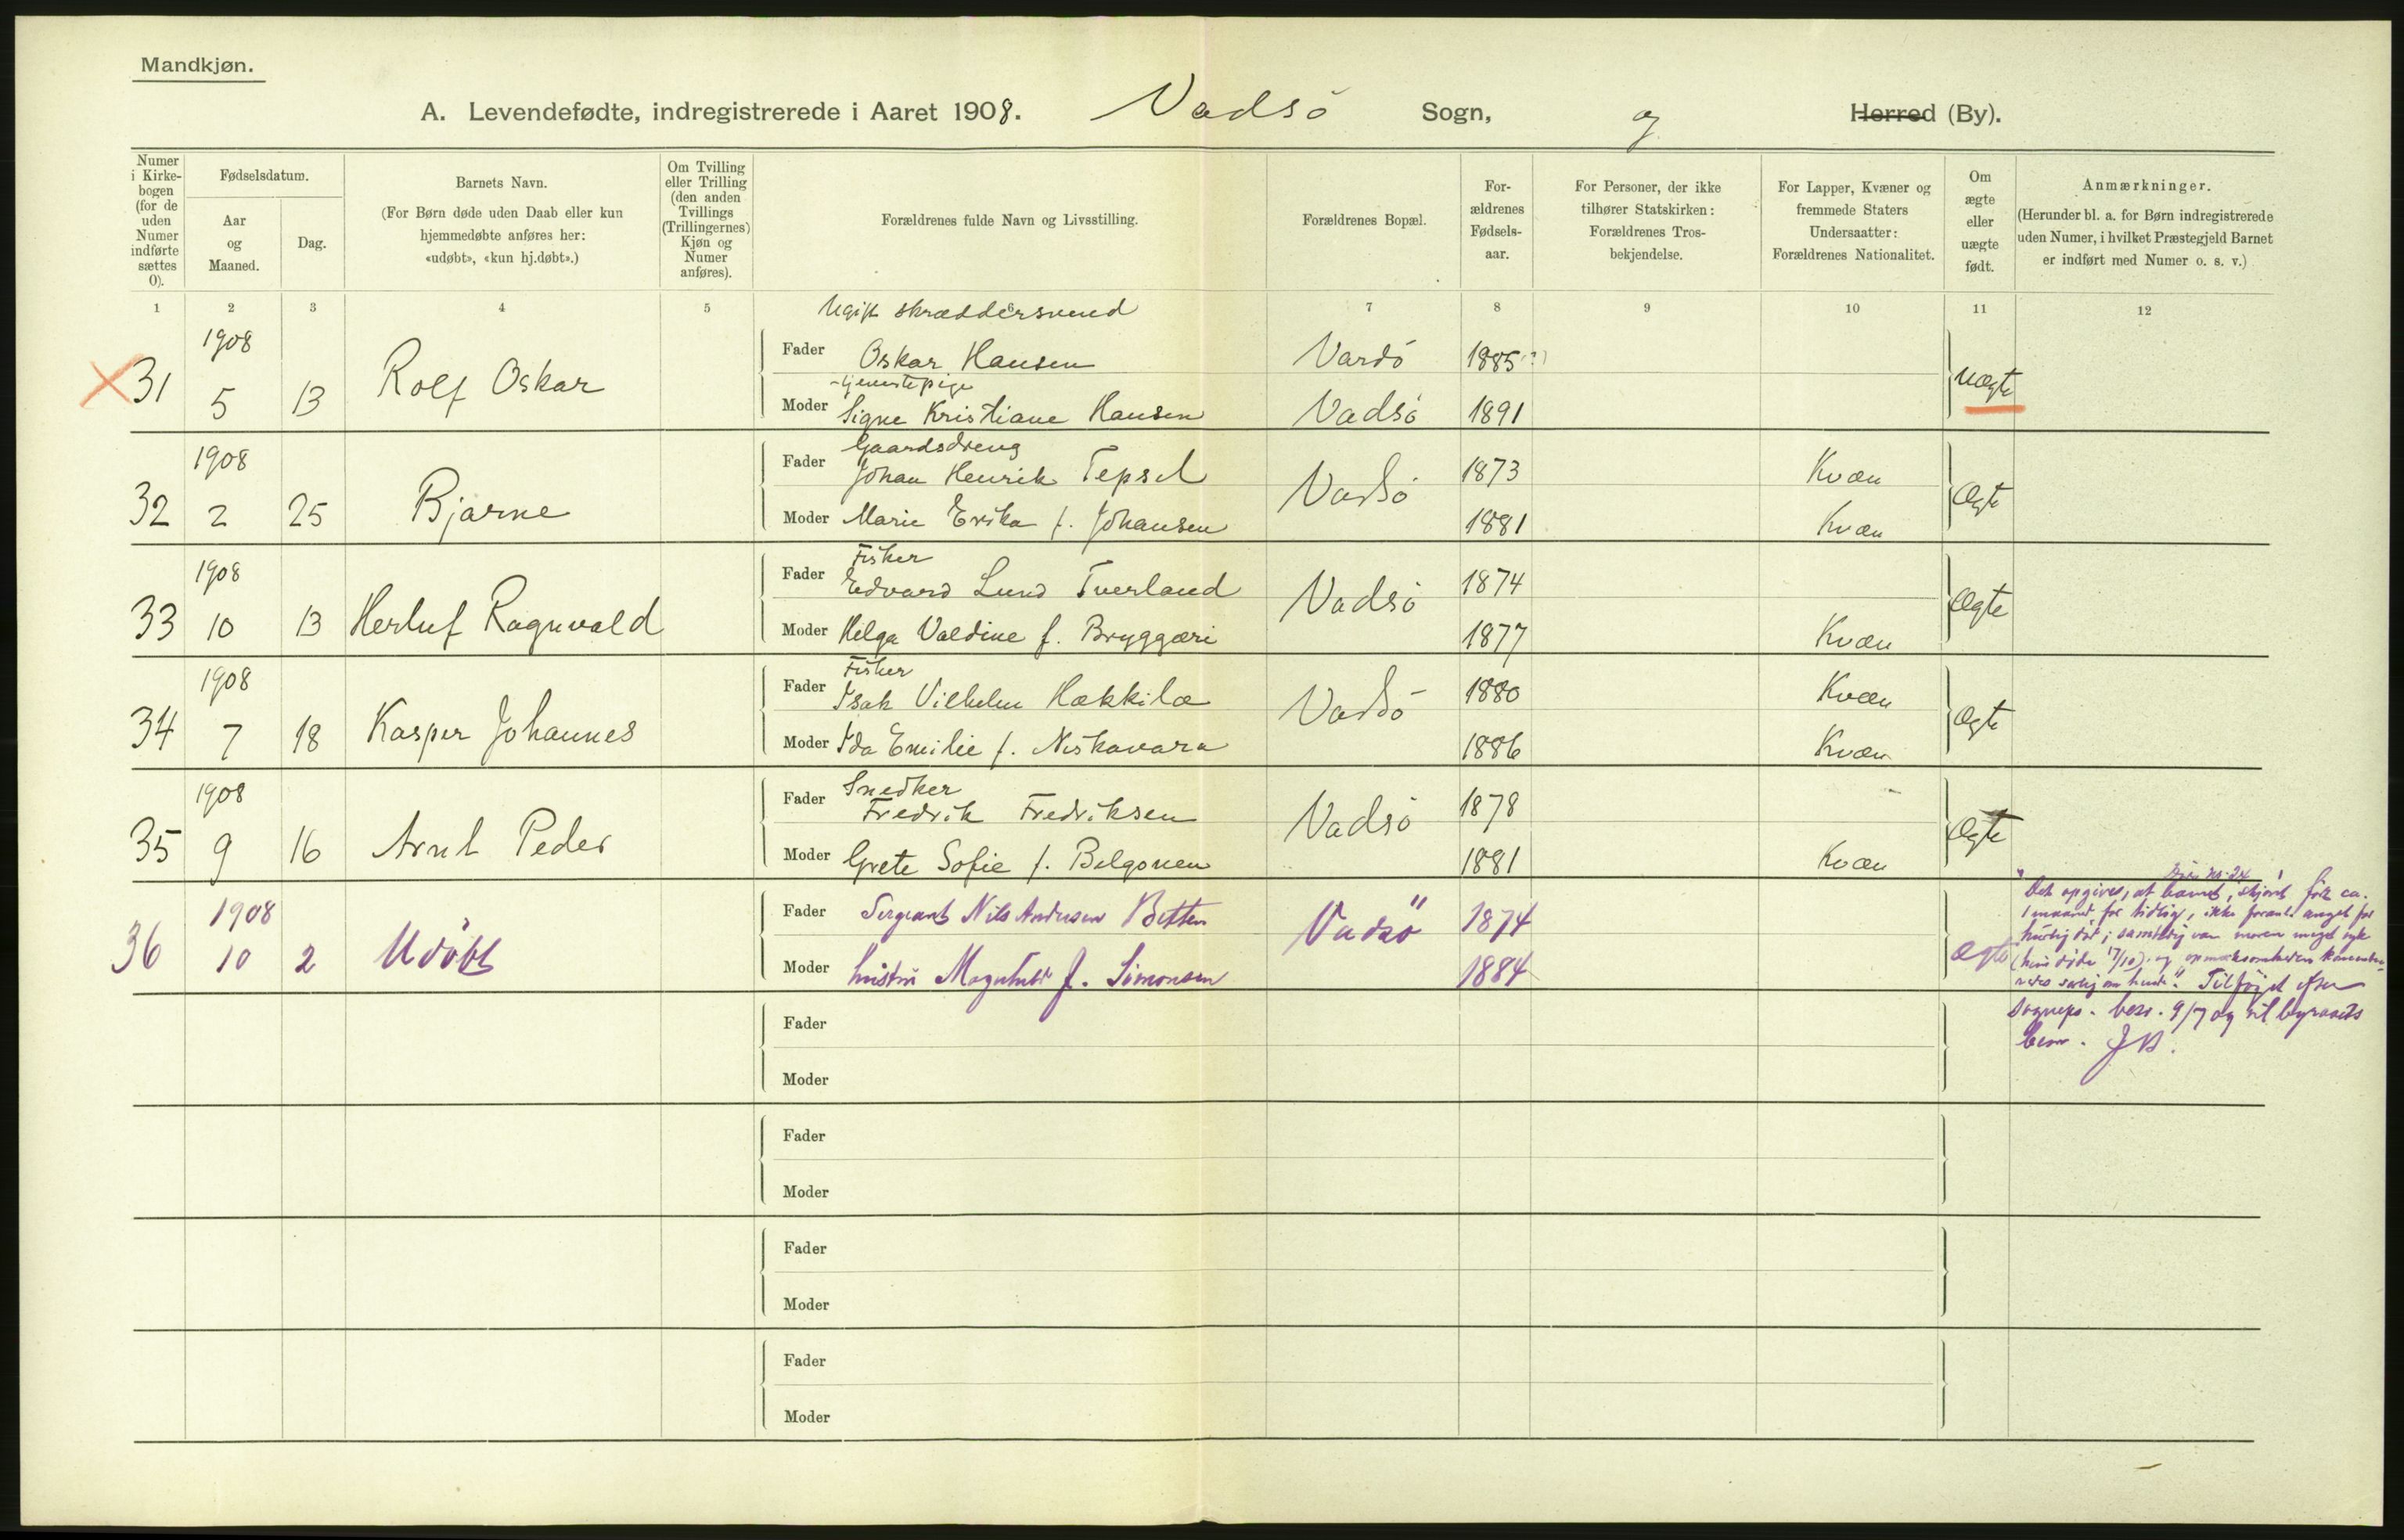 Mandkjøn.
A. Levendefødte, indregistrerede i Aaret 1908. Vadsö Sogn, og Herred (By).
Numer i Kirkebogen (for de uden Numer indførte sættes 0).
Fødselsdatum.
Aar og Maaned.
Dag.
Barnets Navn.
(For Børn døde uden Daab eller kun hjemmedøbte anføres her: «udøbt», «kun hj.døbt».)
Om Tvilling eller Trilling (den anden Tvillings (Trillingernes) Kjøn og Numer anføres).
Forældrenes fulde Navn og Livsstilling.
Forældrenes Bopæl.
Forældrenes Fødselsaar.
For Personer, der ikke tilhører Statskirken: Forældrenes Trosbekjendelse.
For Lapper, Kvæner og fremmede Staters Undersaatter: Forældrenes Nationalitet.
Om ægte eller uægte født.
Anmærkninger.
(Herunder bl. a. for Børn indregistrerede uden Numer, i hvilket Præstegjeld Barnet er indført med Numer o. s. v.)
1 2 3 4 5 7 8 9 10 11 12
Ugift skræddersvend
1908
Fader Oskar Hansen Vardö 1885 (?)
31 5 13 Rolf Oskar uægte
tjenestepige
Moder Signe Kristiane Hansen Vadsö 1891
Gaardsdreng
1908
Fader Johan Henrik Tepsel 1873 Kvæn
32 2 25 Bjarne Vadsö ægte
Moder Marie Erika f. Johansen 1881 Kvæn
Fisker
1908
Fader Edvard Lund Tverland 1874
33 10 13 Herluf Ragnvald Vadsö ægte
Moder Helga Valdine f. Bryggæri 1877 Kvæn
Fisker
1908
Fader Isak Vilhelm Hækkilæ 1880 Kvæn
34 7 18 Kasper Johannes Vadsö ægte
Moder Ida Emilie f. Niskavara 1886 Kvæn
Snedker
1908
Fader Fredrik Fredriksen 1878
35 9 16 Arnt Peder Vadsö ægte
Moder Grete Sofie f. Belgonen 1881 Kvæn
1908
Fader Sergeant Nils Andersen Betten 1874
36 10 2 Udöbt Vadsö ægte
Moder hustru f. Simonsen 1884
"Det opgives, at barnet, skjönt født ca.
1 maaned for tidlig, ikke
hurtig död; samtidig var moren meget syk
(hun döde 17/10) og opmærksomheden
særlig om hende." Tilföjet efter
sogneps. besv. 9/7 og til byraaets
bem. JB.
Fader
Moder
Fader
Moder
Fader
Moder
Fader
Moder